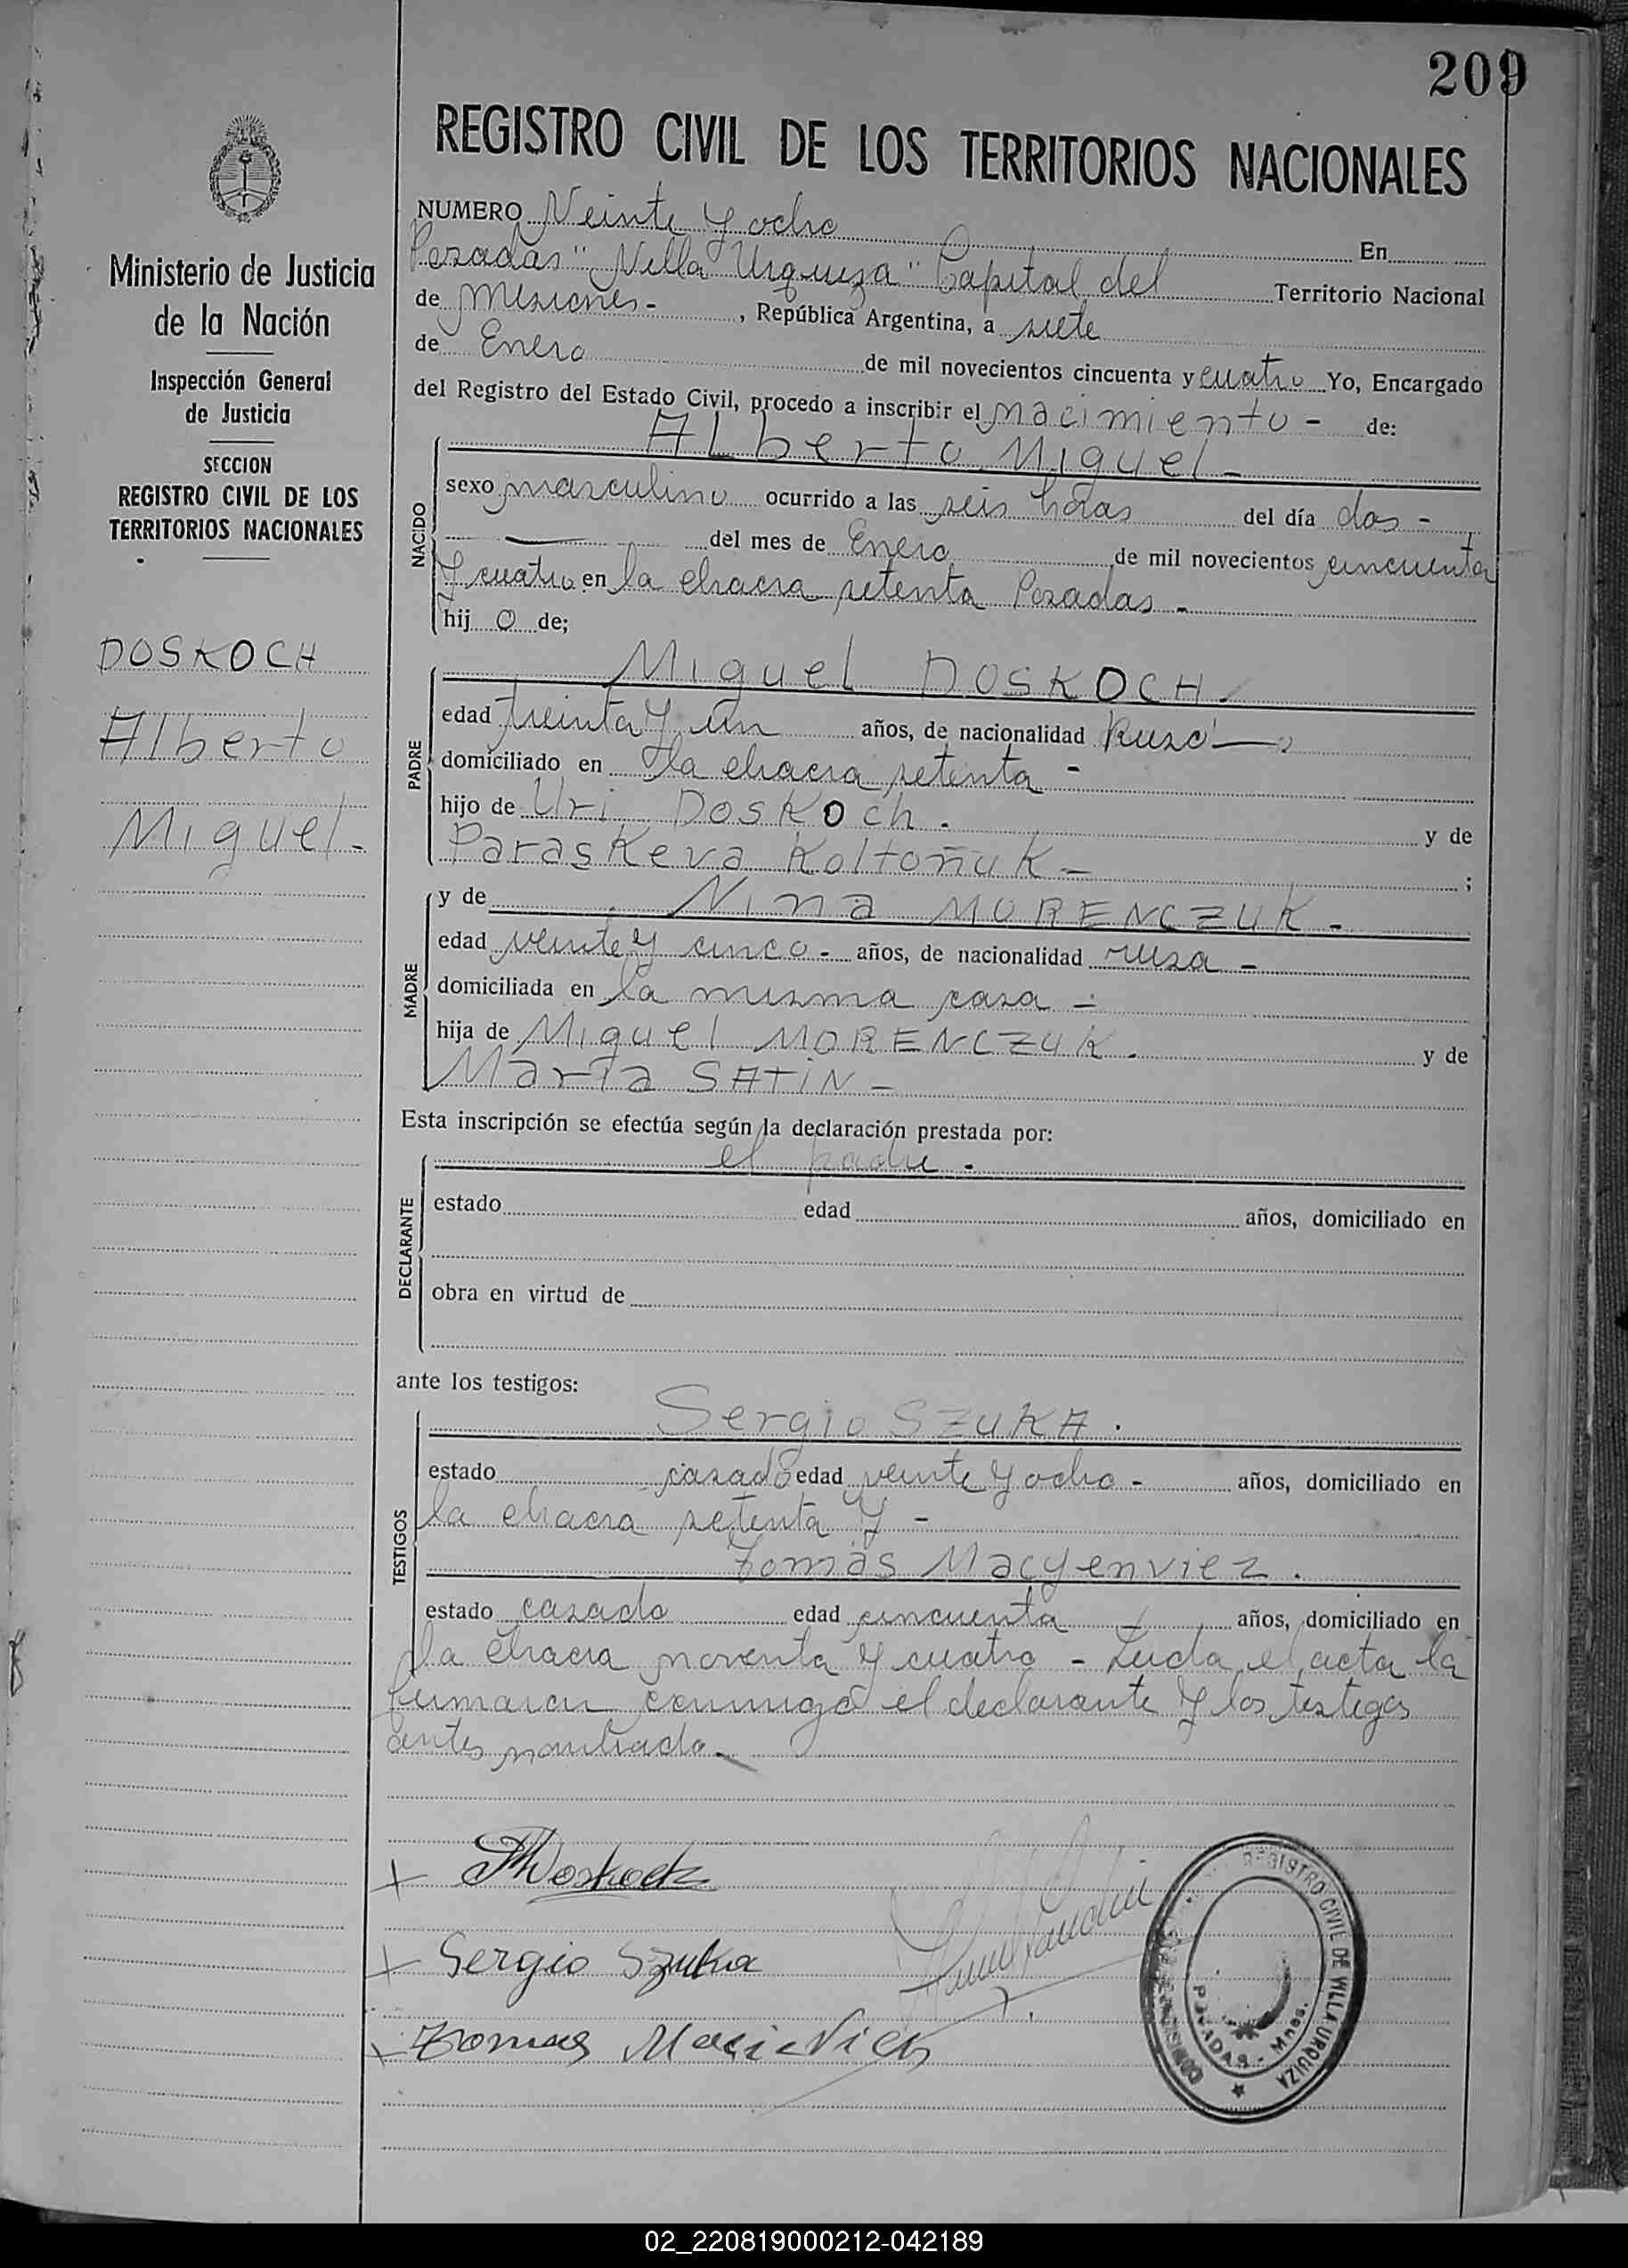 209
REGISTRO CIVIL DE LOS TERRITORIOS NACIONALES
Ministerio de Justicia
de la Nación
Inspección General
de Justicia
SECCION
REGISTRO CIVIL DE LOS
TERRITORIOS NACIONALES
DOSKOCH
Alberto
Miguel-
NUMERO Veinte y ocho En
Posadas "Villa Urquiza" Capital del Territorio Nacional
de Misiones- , República Argentina, a siete
de Enero de mil novecientos cincuenta y cuatro Yo, Encargado
del Registro del Estado Civil, procedo a inscribir el nacimiento - de:
NACIDO
ALberto Miguel-
sexo masculino ocurrido a las seis horas del día dos -
del mes de Enero de mil novecientos cincuenta
y cuatro en la chacra setenta Posadas -
hij o de;
PADRE
Miguel DOSKOCH.
edad treinta y un años, de nacionalidad Ruso
domiciliado en la chacra setenta -
hijo de Uri Doskoch. y de
Paraskeva Koltoñuk - ;
MADRE
y de Nina MORENCZUK -
edad veinte y cinco - años, de nacionalidad rusa -
domiciliada en la misma casa -
hija de Miguel MORENCZUK. y de
María SATiN -
Esta inscripción se efectúa según la declaración prestada por:
DECLARANTE
el padre .
estado edad años, domiciliado en
obra en virtud de
ante los testigos:
TESTIGOS
Sergio SZUKA.
estado casado edad veinte y ocho - años, domiciliado en
la chacra setenta y -
Tomás Macyenviez.
estado casado edad cincuenta años, domiciliado en
la chacra noventa y cuatro - Leida el acta la
firmaron conmigo el declarante y los testigos
antes nombrado.
Doskoch
Sergio Szuka
Tomas
REGISTRO CIVIL DE VILLA URQUIZA
POSADAS - Mnes.
02_220819000212-042189